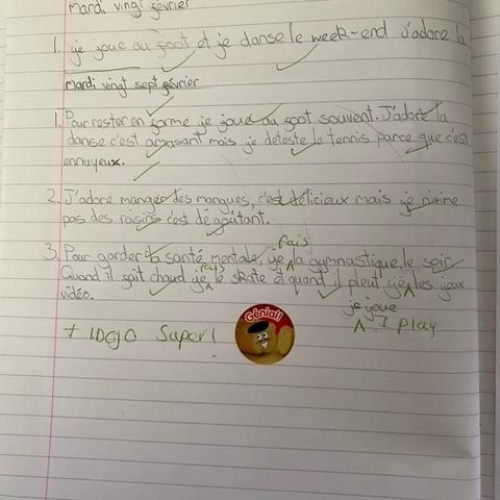 Mardi vingt février
1. je joue au foot et je danse le week-end J'adore la
Mardi vingt sept février
1. Pour rester en forme je joue au foot souvent. J'adore la
danse c'est amusant mais je deteste le tennis parce que c'est
ennuyeux.
2. J'adore manger des mangues, c'est délicieux mais je n'aime
pas des raisins c'est dégoûtant.
fais
3. Pour garder la santé mentale, je la gymnastique le soir
Quand il fait chaud je fais le skate et quand il pleut je les jeux
vidéo.
je joue
I play
+ 10DJO Super!
Génial!